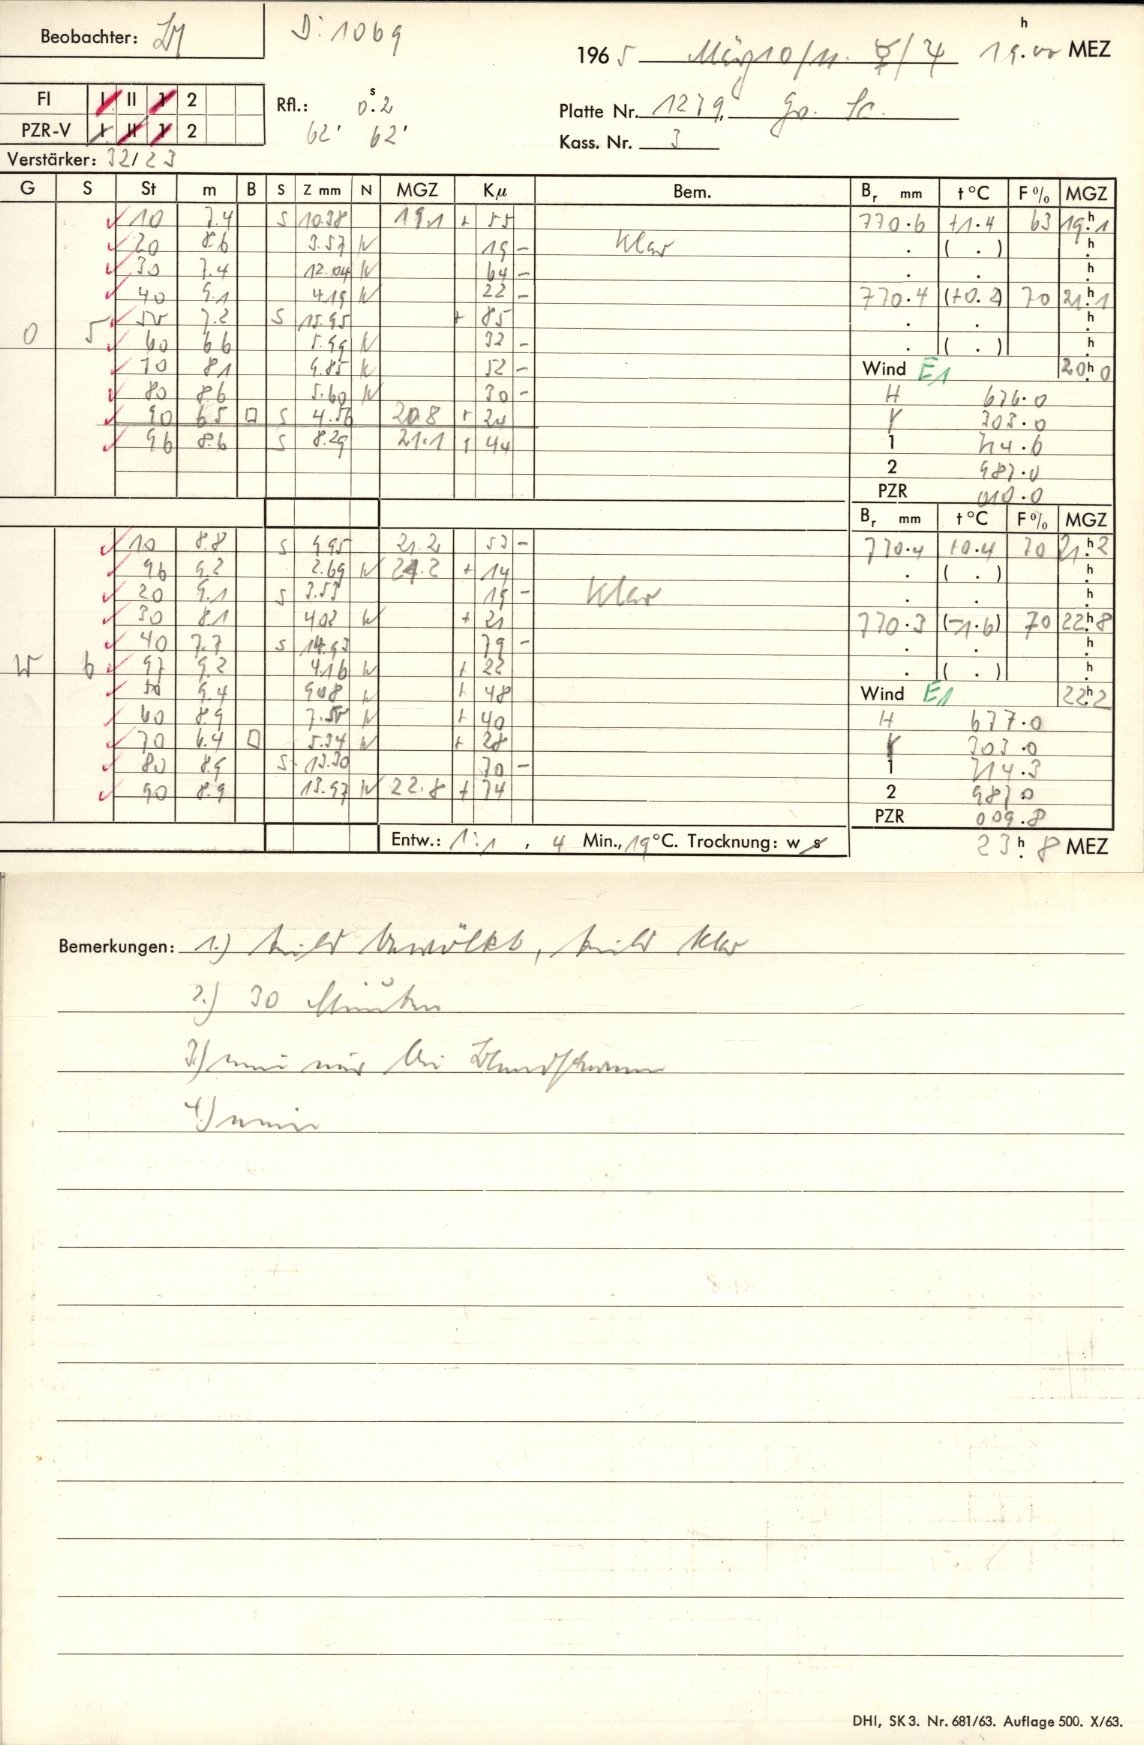 Beobachter:
D: 1069
h
1965 März 10/11. ☿/♃ 19.00 MEZ
FI I II 1 2
Rfl.: 0.2 s
Platte Nr. 1279,
PZR-V I II 1 2
62' 62'
Kass. Nr. 3
Verstärker: 32/23
G S St m B S Z mm N MGZ Kμ Bem. Br mm t °C F % MGZ
O 5
10 7.4 S 10.38 19.1 + 55 770.6 +1.4 63 19h.1
20 8.6 3.57 N 19 - klar . ( . ) h
30 7.4 12.04 N 64 - . . h
40 9.1 4.19 N 22 - 770.4 (+0.2) 70 21h.1
50 7.2 S 15.95 + 85 . . h
60 6.6 5.99 N 32 - . ( . ) h
70 8.1 9.85 N 52 - Wind E1 20h.0
80 8.6 5.60 N 30 - H 676.0
90 6.5 □ S 4.56 20.8 + 24 303.0
96 8.6 S 8.29 21.1 + 44 1 714.6
2 987.0
PZR 010.0
Br mm t °C F % MGZ
W 6
10 8.8 S 9.95 21.2 53 - 770.4 +0.4 70 21h.2
96 9.2 2.69 N 21.2 + 14 . ( . ) h
20 9.1 S 3.53 19 - klar . . h
30 8.1 4.02 N + 21 770.3 (-1.6) 70 22h.8
40 7.7 S 14.93 79 - . . h
97 9.2 4.16 N + 22 . ( . ) h
50 9.4 9.08 N + 48 Wind E1 22h.2
60 8.9 7.50 N + 40 H 677.0
70 6.4 □ 5.34 N + 28 303.0
80 8.9 S 13.30 70 - 1 714.3
90 8.9 13.97 N 22.8 + 74 2 987.0
PZR 009.8
Entw.: 1:1, 4 Min., 19 °C. Trocknung: w s
23h.8 MEZ
Bemerkungen: 1.) bewölkt, klar
2.) 30 Minuten
3.) nur bei
4.)
DHI, SK 3. Nr. 681/63. Auflage 500. X/63.